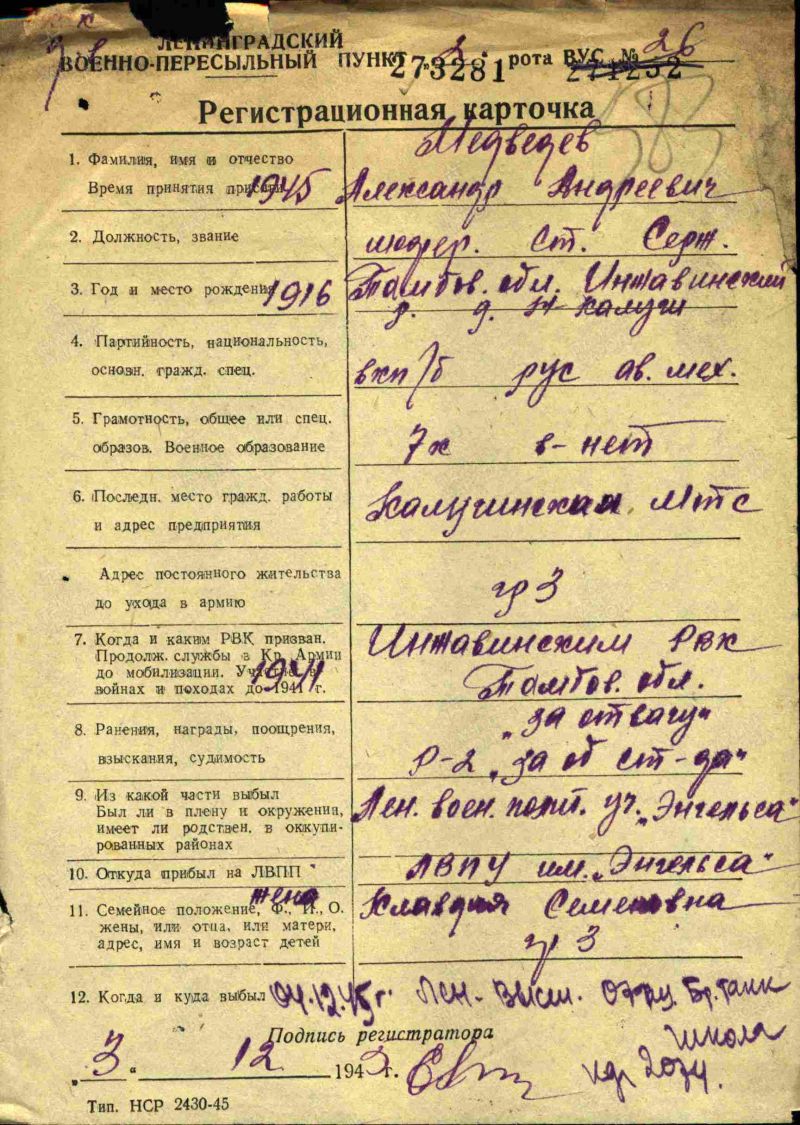 ЛЕНИНГРАДСКИЙ
ВОЕННО-ПЕРЕСЫЛЬНЫЙ ПУНКТ „2“ рота ВУС № 26
273281 271232
Регистрационная карточка
1. Фамилия, имя и отчество Медведев
Время принятия присяги 1945 Александр Андреевич
2. Должность, звание шофер. ст. Серж.
3. Год и место рождения 1916 Тамбов. обл. Инжавинский
р. д. Калуги
4. Партийность, национальность,
основн. гражд. спец. вкп/б рус ав. мех.
5. Грамотность, общее или спец.
образов. Военное образование 7х в-нет
6. Последн. место гражд. работы Калугинская Мтс
и адрес предприятия
Адрес постоянного жительства
до ухода в армию гр 3
7. Когда и каким РВК призван. Инжавинским РВК
Продолж. службы в Кр. Армии
до мобилизации. Участие в Тамбов. обл.
войнах и походах до 1941 г. 1941
„за отвагу“
8. Ранения, награды, поощрения,
взыскания, судимость Р-2 „за об ст-да“
9. Из какой части выбыл
Был ли в плену и окружении, Лен. воен. полит. уч. „Энгельса“
имеет ли родствен. в оккупи-
рованных районах
10. Откуда прибыл на ЛВПП ЛВПУ им. „Энгельса“
жена
11. Семейное положение, Ф., И., О. Клавдия Семеновна
жены, или отца, или матери,
адрес, имя и возраст детей гр 3
12. Когда и куда выбыл 04.12.45г. Лен. Высш. Офиц. Бр. танк
школа
Подпись регистратора
„3“ 12 1945 г.
Тип. НСР 2430-45